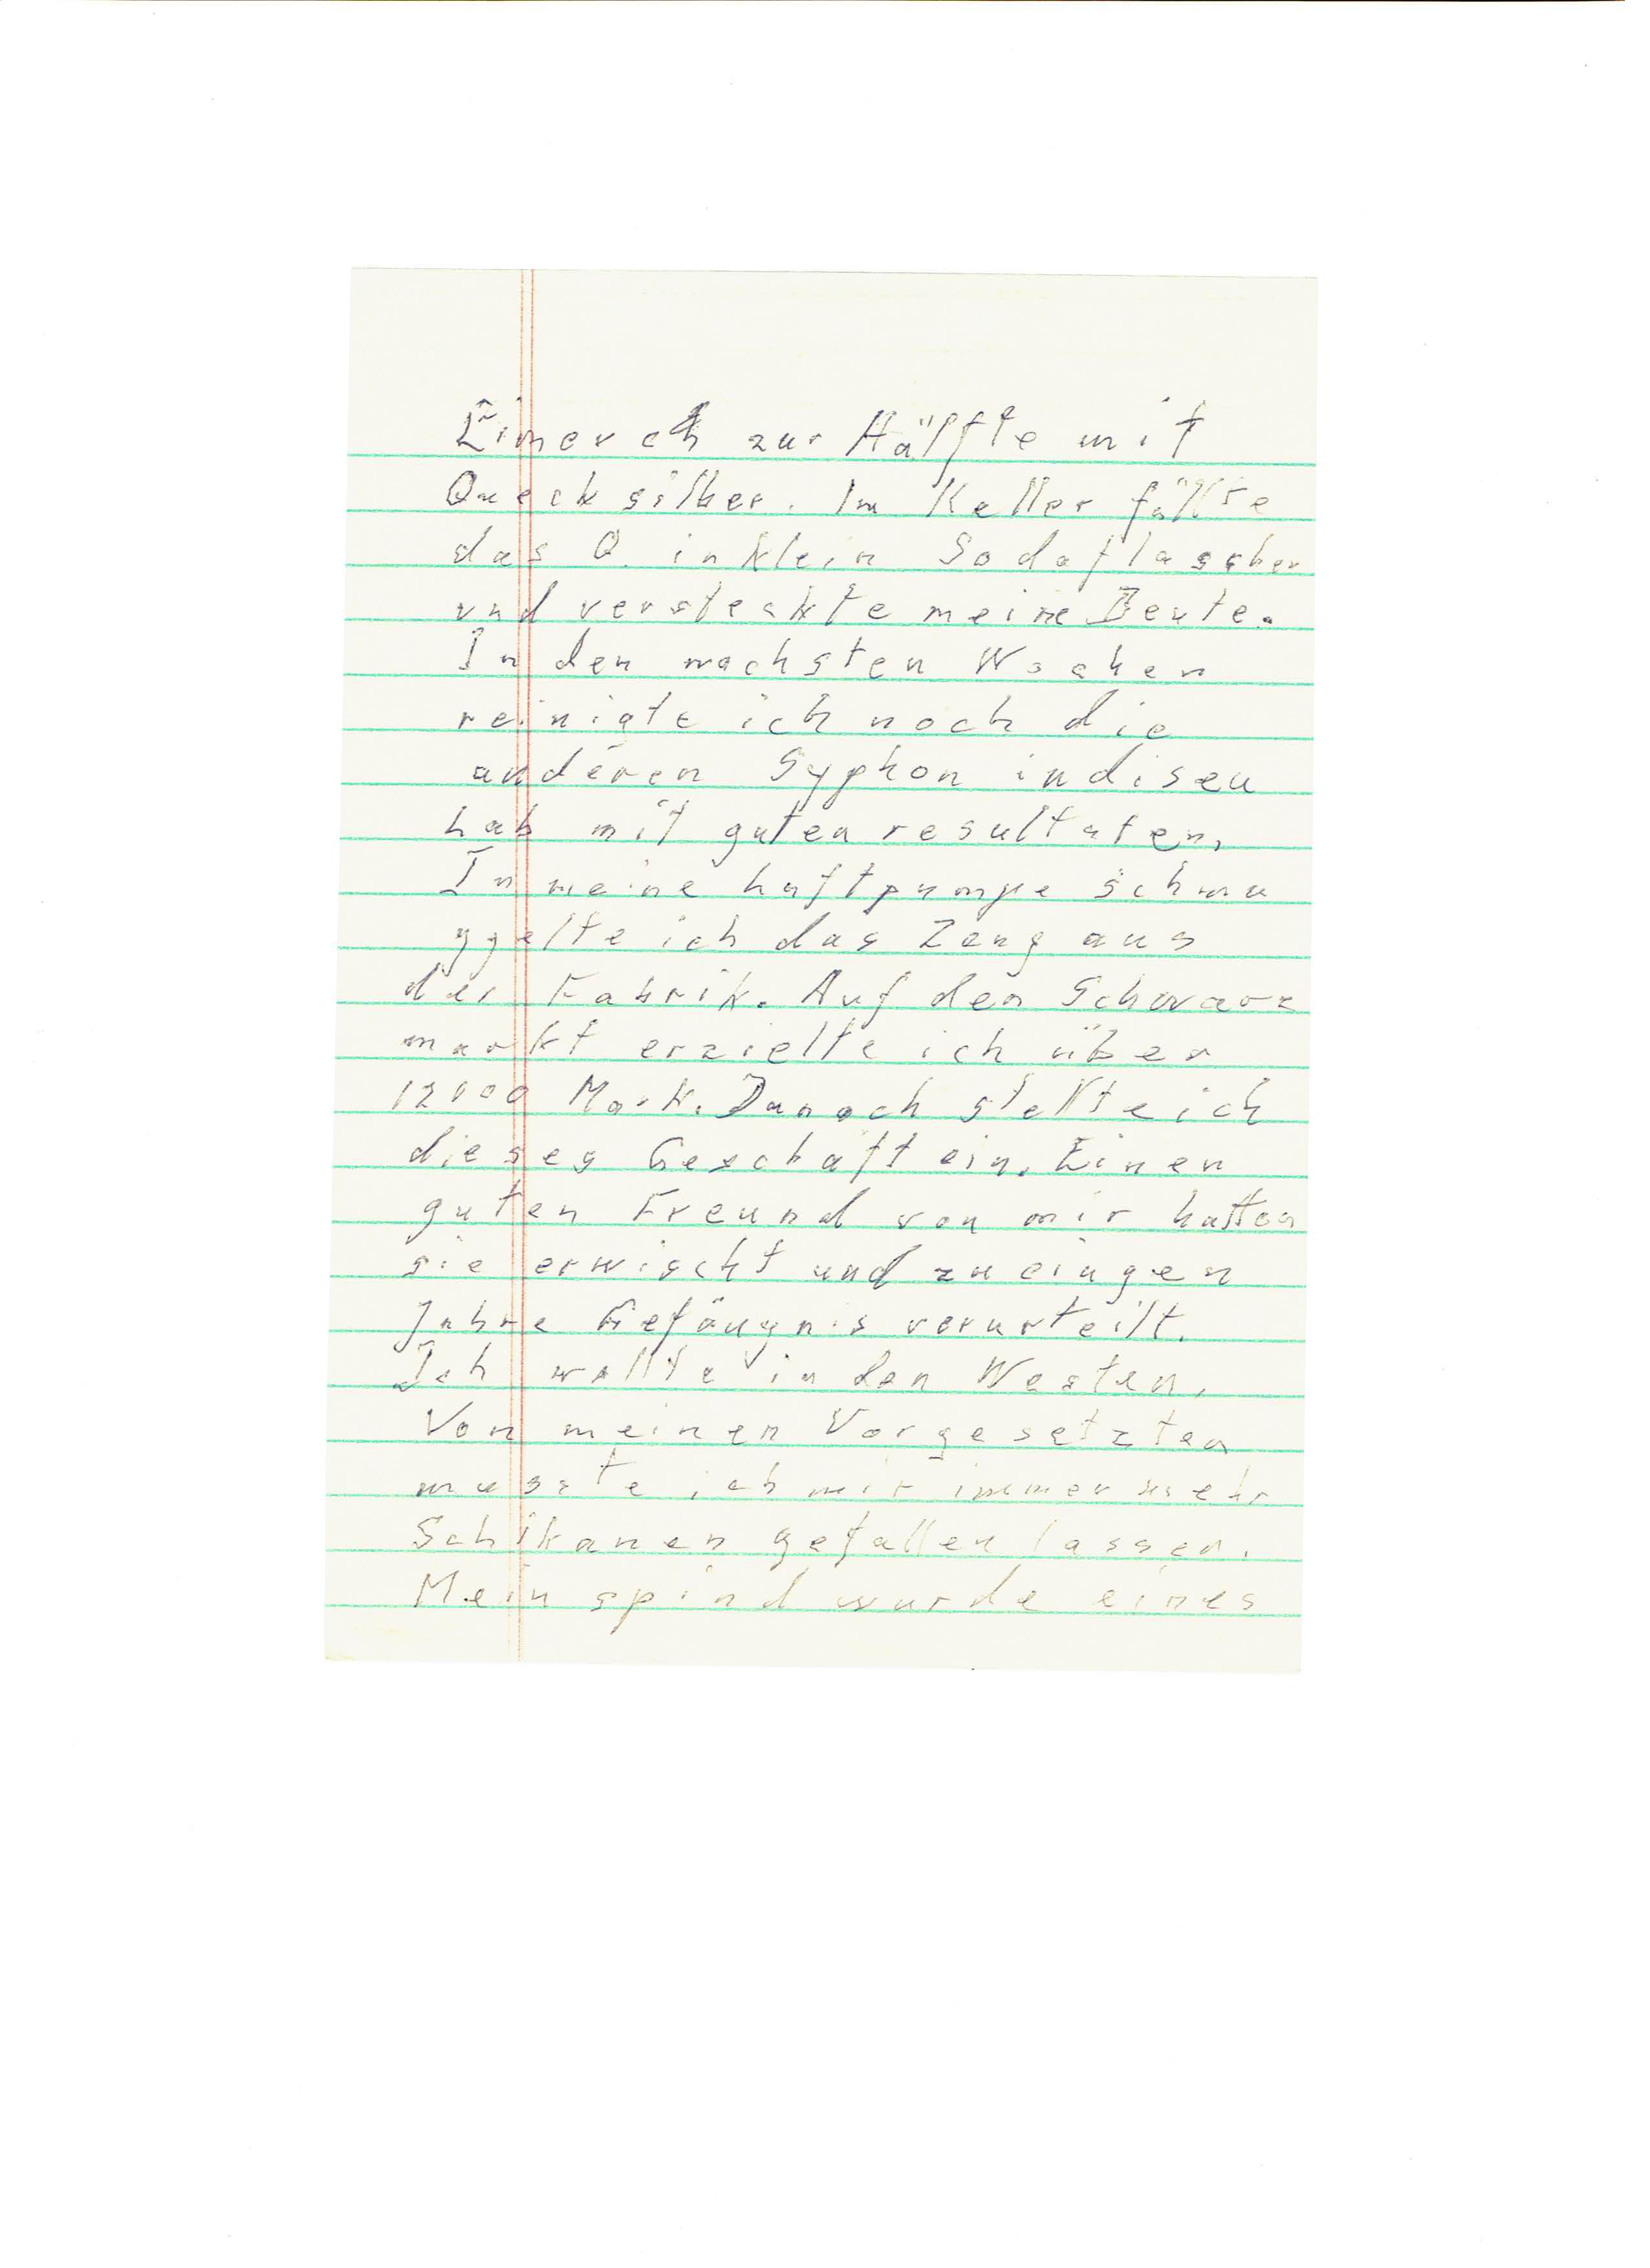 Eimerch zur Hälfte mit
Quecksilber. Im Keller füllte
das Q. in klein Sodaflaschen
und versteckte meine Beute.
In den nachsten Wochen
reinigte ich noch die
anderen Syphon in diseu
Lab mit guten resultaten,
In meine Luftpumpe schmu
ggelte ich das Zeug aus
der Fabrik. Auf den Schwarz
markt erzielte ich über
12000 Mark. Danach stellte ich
dieses Geschäft ein. Einen
guten Freund von mir hatten
sie erwischt und zu eingen
Jahre Gefängnis verurteilt.
Ich wollte in den Westen.
Von meinen Vorgesetzten
musste ich mir immer mehr
Schikanen gefallen lassen.
Mein spind wurde eines